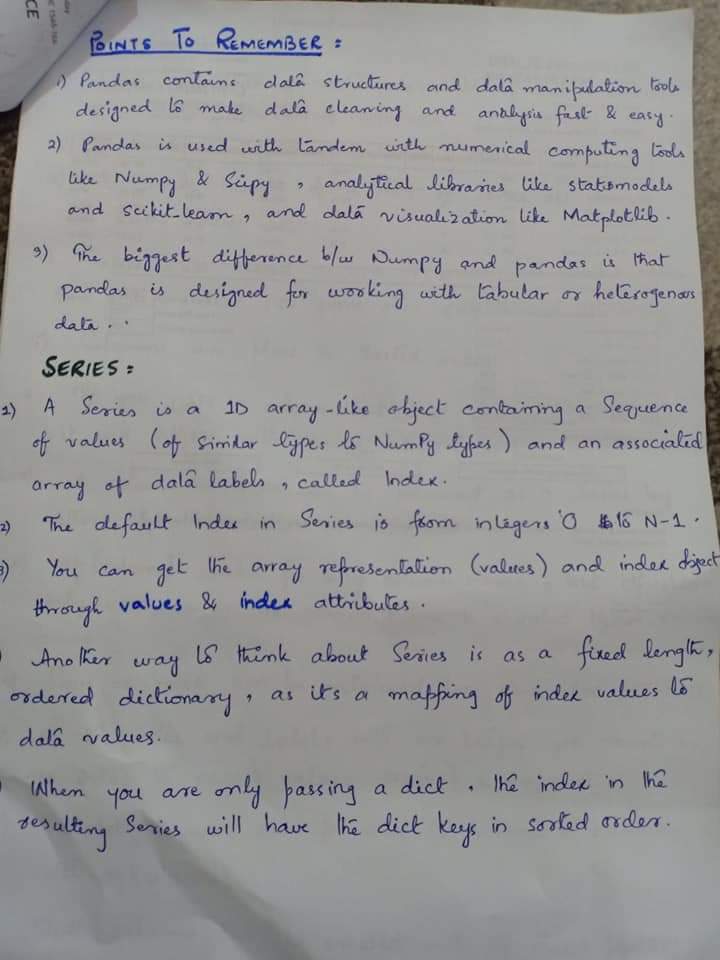 CE
POINTS TO REMEMBER :
1) Pandas contains data structures and data manipulation tools
designed to make data cleaning and analysis fast & easy.
2) Pandas is used with tandem with numerical computing tools
like Numpy & Scipy , analytical libraries like statsmodels
and scikit-learn , and data visualization like Matplotlib .
3) The biggest difference b/w Numpy and pandas is that
pandas is designed for working with tabular or heterogenous
data . .
SERIES :
1) A Series is a 1D array-like object containing a Sequence
of values (of similar types to NumPy types) and an associated
array of data labels , called Index .
2) The default Index in Series is from integers 0 to N-1 .
3) You can get the array representation (values) and index object
through values & index attributes .
Another way to think about Series is as a fixed length,
ordered dictionary , as its a mapping of index values to
data values.
When you are only passing a dict , the index in the
resulting Series will have the dict keys in sorted order.